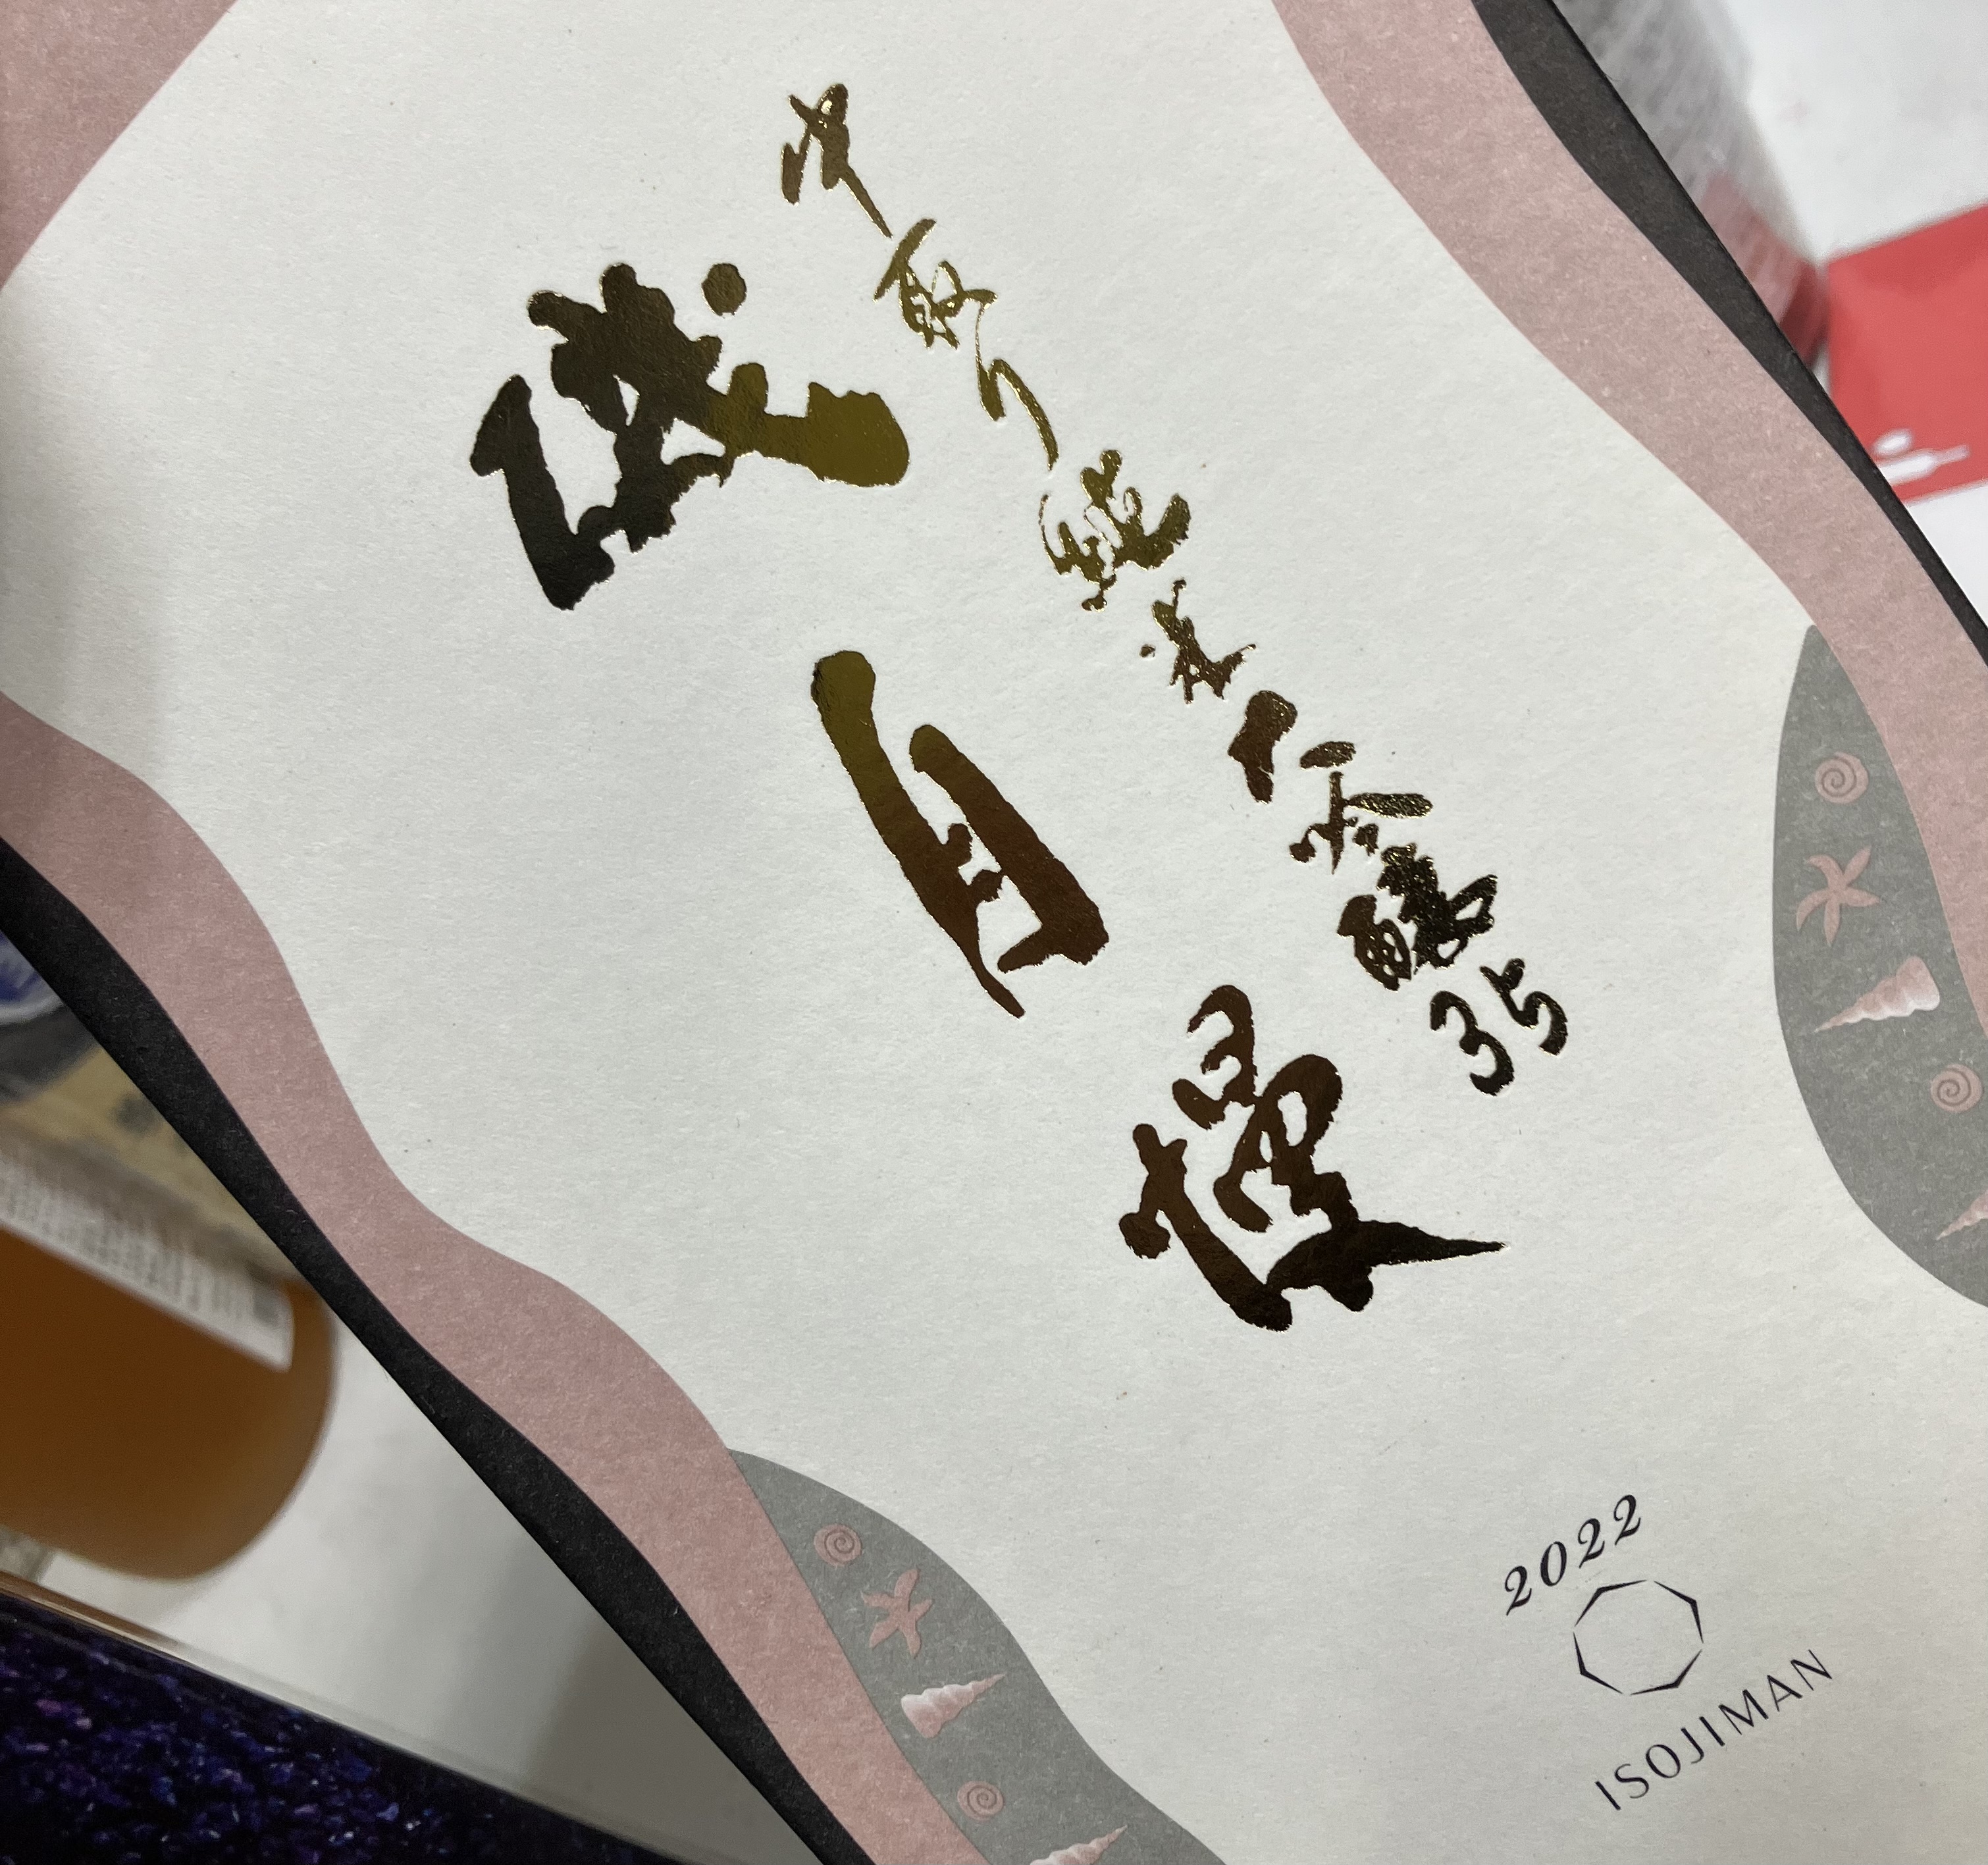 中取り純米大吟醸35
磯自慢
2022
ISOJIMAN